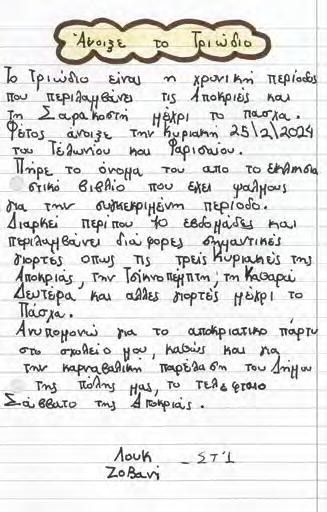 Άνοιξε το Τριώδιο
Το Τριώδιο είναι η χρονική περίοδος
που περιλαμβάνει τις Αποκριές και
τη Σαρακοστή μέχρι το πασχα.
Φέτος άνοιξε την Κυριακή 25/2/2024
του Τελωνίου και Φαρισαίου.
Πήρε το όνομα του απο το εκκλησια
στικό βιβλίο που εχει ψαλμους
για την συγκεκριμένη περίοδο.
Διαρκεί περίπου 10 εβδομάδες και
περιλαμβάνει διάφορες σημαντικές
γιορτές οπως τις τρείς Κυριακές της
Αποκριάς, την Τσικνοπέμπτη, τη Καθαρά
Δευτέρα και αλλες γιορτές μέχρι το
Πάσχα.
Ανυπομονώ για το αποκριατικο πάρτυ
στο σχολείο μου, καθώς και για
την καρναβαλική παρέλαση του Δήμου
της πόλης μας, το τελευταιο
Σάββατο της Αποκριάς.
Λουκ - ΣΤ'1
Ζοβανι